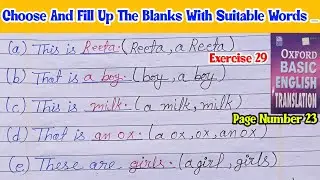 Choose And Fill Up The Blanks With Suitable Words
(a) This is Reeta. (Reeta, a Reeta)
Exercise 29
(b) That is a boy. (boy, a boy)
(c) This is milk. (a milk, milk)
(d) That is an ox. (a ox, ox, an ox)
(e) These are girls. (a girl, girls)
OXFORD
BASIC
ENGLISH
TRANSLATION
Page Number 23